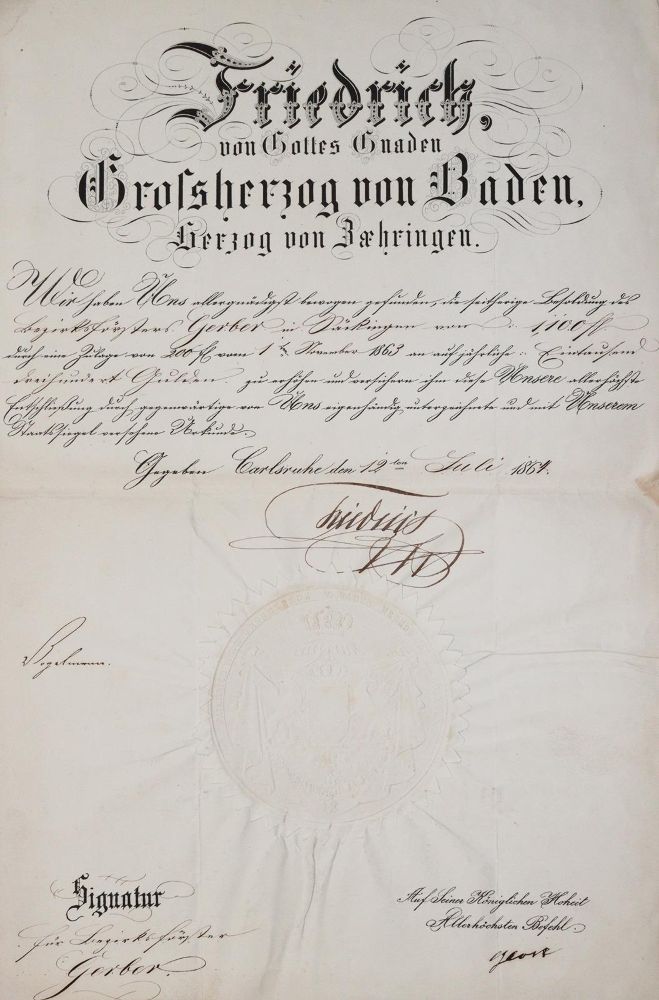 Friedrich,
von Gottes Gnaden
Grossherzog von Baden,
Herzog von Zæhringen.
Wir haben Uns allergnädigst bewogen gefunden, die seitherige Besoldung des
Bezirksförsters Gerber in Säckingen von 1100 fl.
durch eine Zulage von 200 fl. vom 1ten November 1863 an auf jährliche: Eintausend
dreihundert Gulden zu erhöhen und versichern ihm diese Unsere allerhöchste
Entschließung durch gegenwärtige von Uns eigenhändig unterzeichnete und mit Unserem
Staatssiegel versehene Urkunde.
Gegeben Carlsruhe den 12ten Juli 1864.
Friedrich
Vogelmann.
Signatur
für Bezirksförster
Gerber.
Auf Seiner Königlichen Hoheit
Allerhöchsten Befehl.